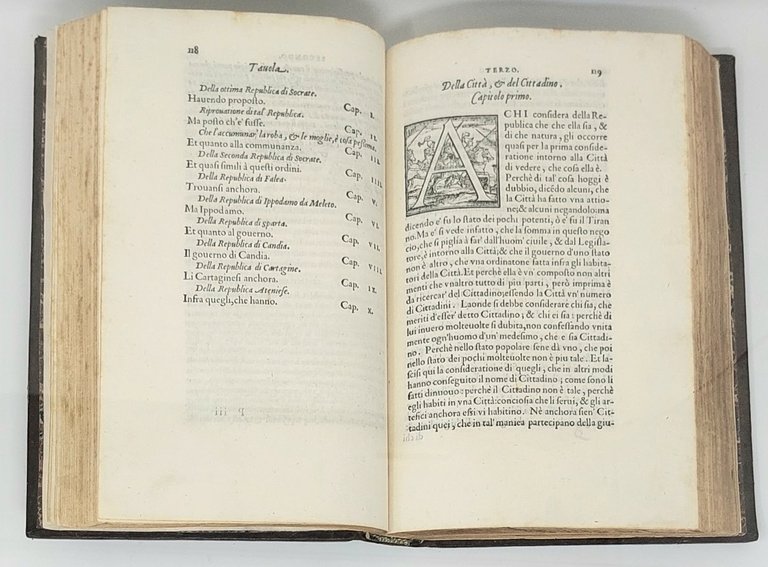 118
Tauola.
Della ottima Republica di Socrate.
Hauendo proposto. Cap. I.
Riprouatione di tal Republica.
Ma posto ch'e' fusse. Cap. II.
Che l'accumunar, la roba, & le moglie, è cosa pessima.
Et quanto alla communanza. Cap. III.
Della Seconda Republica di Socrate.
Et quasi simili à questi ordini. Cap. IIII.
Della Republica di Falea.
Trouansi anchora. Cap. V.
Della Republica di Ippodamo da Meleto.
Ma Ippodamo. Cap. VI.
Della Republica di Sparta.
Et quanto al gouerno. Cap. VII.
Della Republica di Candia.
Il gouerno di Candia. Cap. VIII.
Della Republica di Cartagine.
Li Cartaginesi anchora. Cap. IX.
Della Republica Ateniese.
Infra quegli, che hanno. Cap. X.
TERZO. 119
Della Città, & del Cittadino.
Capitolo primo.
A CHI considera della Re-
publica che che ella sia, &
di che natura, gli occorre
quasi per la prima conside-
ratione intorno alla Città
di vedere, che cosa ella è.
Perchè di tal' cosa hoggi è
dubbio, dicẽdo alcuni, che
la Città ha fatto vna attio-
ne; & alcuni negandolo: ma
dicendo e' fu lo stato dei pochi potenti, ò e' fu il Tiran
no. Ma e' si vede infatto, che la somma in questo nego
cio, che si piglia à far' dall'huom' ciuile, & dal Legisla-
tore, è intorno alla Città; & che il gouerno d'uno stato
non è altro, che vna ordinatione fatta infra gli habita-
tori della Città. Et perchè ella è vn' composto non altri
menti che vnaltro tutto di piu parti, però imprima è
da ricercar' del Cittadino; essendo la Città vn' numero
di Cittadini. Laonde si debbe considerare chi sia, che
meriti d'esser' detto Cittadino; & chi ei sia: perchè di
lui inuero molteuolte si dubita, non confessando vnita
mente ogn'huomo d'un' medesimo, che e sia Cittadi-
no. Perchè nello stato popolare sene dà vno, che poi
nello stato dei pochi molteuolte non è piu tale. Et la-
scisi qui la consideratione di quegli, che in altri modi
hanno conseguito il nome di Cittadino; come sono li
fatti dinuouo: perchè il Cittadino non è tale, perchè
egli habiti in vna Città: conciosia che li serui, & gli ar-
tefici anchora essi vi habitino. Nè anchora sien' Cit-
tadini quei, che in tal' maniera partecipano della giu-